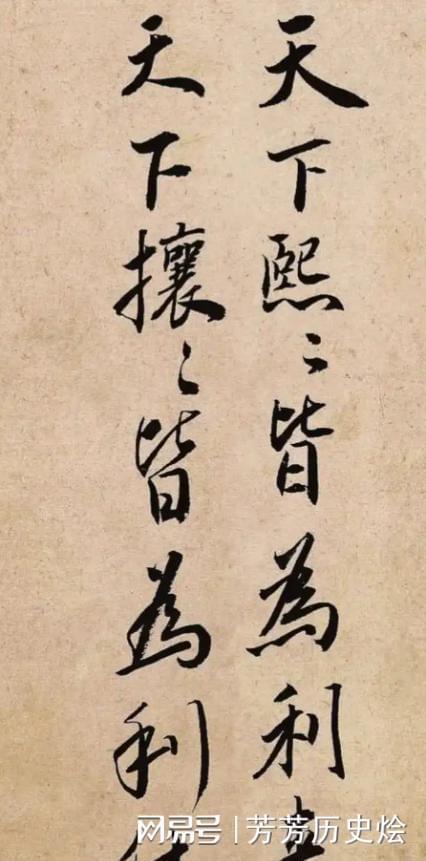 天下熙〻皆為利
天下攘〻皆為利
网易号 | 芳芳历史烩